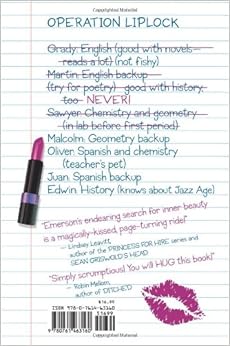 OPERATION LIPLOCK
Grady: English (good with novels—
reads a lot) (not fishy)
Martin: English backup
(try for poetry) good with history,
too NEVER!
Sawyer: Chemistry and geometry
(in lab before first period)
Malcolm: Geometry backup
Oliver: Spanish and chemistry
(teacher's pet)
Juan: Spanish backup
Edwin: History (knows about Jazz Age)
"Emerson's endearing search for inner beauty
is a magically-kissed, page-turning ride!"
— Lindsey Leavitt,
author of the PRINCESS FOR HIRE series and
SEAN GRISWOLD'S HEAD
"Simply scrumptious! You will HUG this book!"
— Robin Mellom,
author of DITCHED
ISBN 978-0-7614-6316-0
$16.99
51699
9 780761 463160